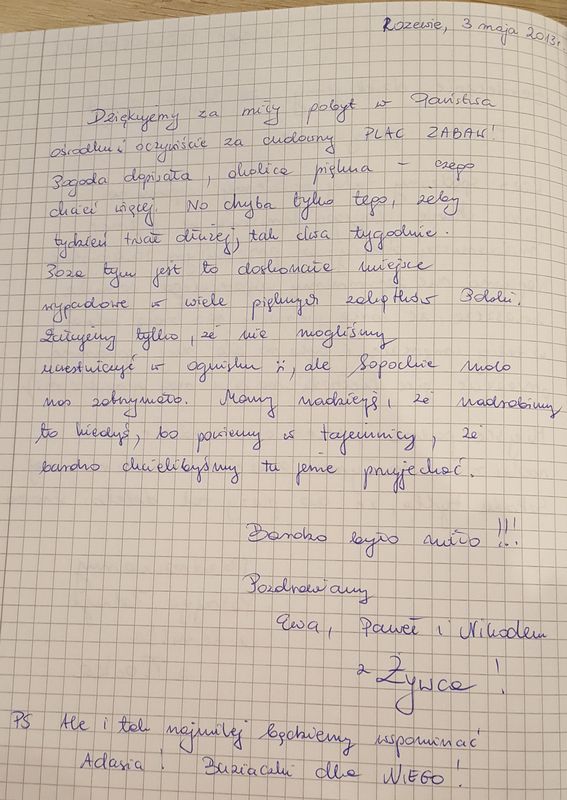 Rozewie, 3 maja 2013r.
Dziękujemy za miły pobyt w Państwa
ośrodku i oczywiście za cudowny PLAC ZABAW!
Pogoda dopisała, okolica piękna – czego
chcieć więcej. No chyba tylko tego, żeby
tydzień trwał dłużej, tak dwa tygodnie.
Poza tym jest to doskonałe miejsce
wypadowe w wiele pięknych zakątków Polski.
Żałujemy tylko, że nie mogliśmy
uczestniczyć w ognisku :(, ale Sopockie molo
nas zatrzymało. Mamy nadzieję, że nadrobimy
to kiedyś, bo powiemy w tajemnicy, że
bardzo chcielibyśmy tu jeszcze przyjechać.
Bardzo było miło !!!
Pozdrawiamy
Ewa, Paweł i Nikodem
z Żywca !
PS Ale i tak najmilej będziemy wspominać
Adasia! Buziaczki dla NIEGO!